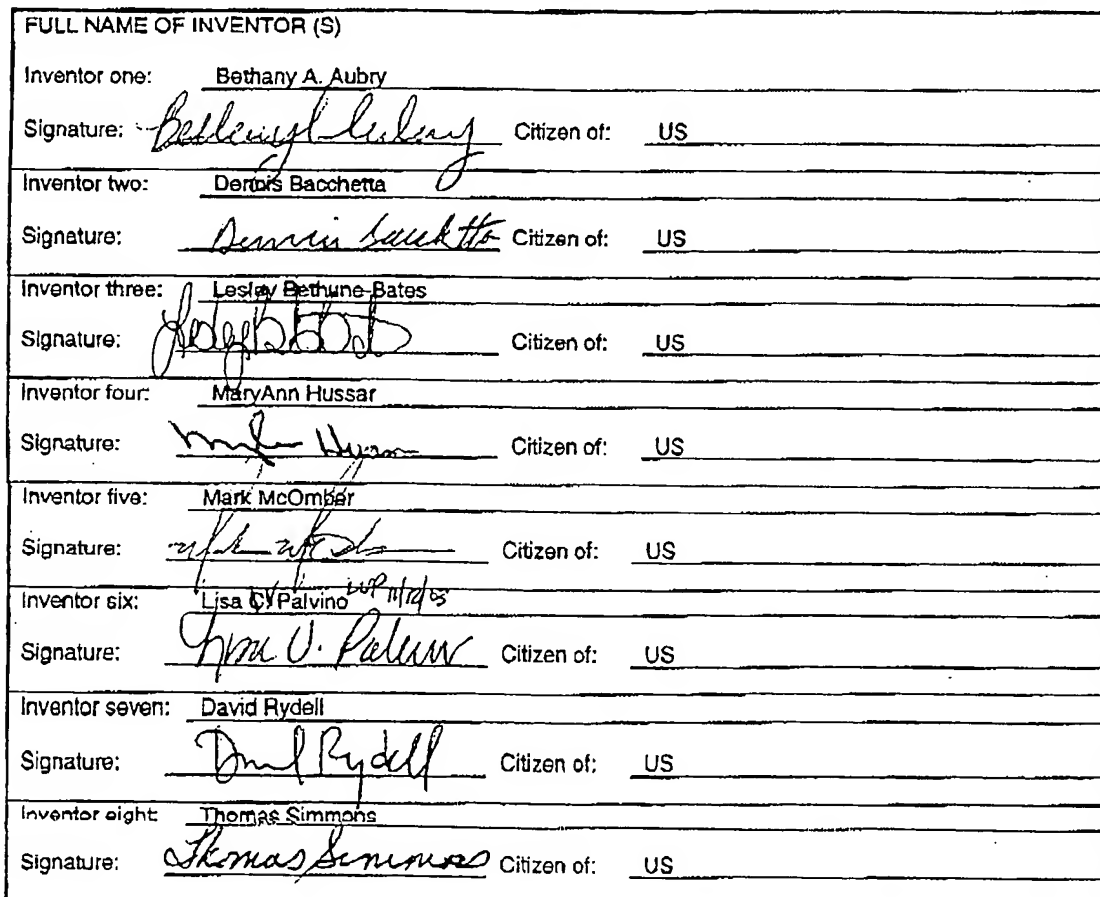 FULL NAME OF INVENTOR (S)
Inventor one: Bethany A. Aubry
Signature: Citizen of: US
Inventor two: Dennis Bacchetta
Signature: Dennis Bacchetta Citizen of: US
Inventor three: Lesley Bethune-Bates
Signature: Citizen of: US
Inventor four: MaryAnn Hussar
Signature: Citizen of: US
Inventor five: Mark McOmber
Signature: Citizen of: US
Inventor six: Lisa C. Palvino V LVP
Signature: Lisa V. Palvino Citizen of: US
Inventor seven: David Rydell
Signature: David Rydell Citizen of: US
Inventor eight: Thomas Simmons
Signature: Thomas Simmons Citizen of: US